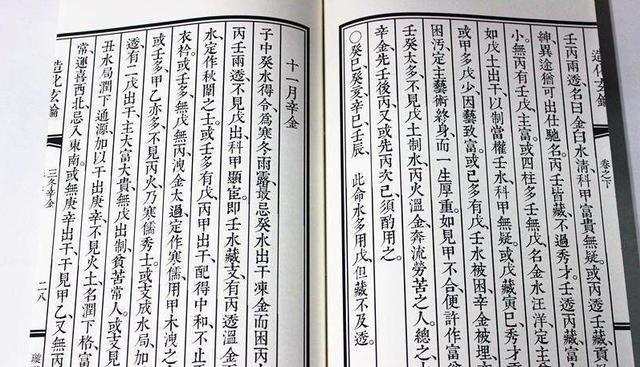 造化玄鑰 卷之下
壬丙兩透名曰金白水淸、科甲富貴無疑。或丙透壬藏、貢
紳異途僧可出仕馳名。丙壬皆藏、不過秀才。壬透丙藏、富
小。無丙有壬戊、主富。或四柱多壬無戊、名金水汪洋、定主
如戊土出干以制當權壬水、科甲無疑。或戊藏寅巳、秀才
或甲多戊少、因藝致富。或己多有戊、壬水被困、辛金被埋、
困污、定主藝術終身、而一生厚重。如見甲不合、便許作富
壬癸太多、不見戊土制水、丙火溫金、奔流勞苦之人。總之
辛金先壬後丙、又或先丙次己、須酌用之。
○癸巳、癸亥、辛巳、壬辰。 此命水多用戊、但藏不及透。
十一月辛金
子中癸水得令、為寒冬雨露、最忌癸水出干、凍金而困丙
丙壬兩透、不見戊出、科甲顯宦。即壬水藏支、有丙透溫金
水、定作秋闈之士。或壬多有戊、丙甲出干、配得中和、不止
衣衿。或壬多無戊無丙、洩金太過、定作寒儒、用甲木洩之
或壬多、甲乙亦多、不見丙火、乃寒儒秀士。或支成水局、加
透、有二戊出干、主大富大貴、無戊出制、貧苦常人。或支見
丑水局潤下通源、加以干出庚辛、不見火土、名潤下格、富
常、運喜西北、忌入東南。或無庚辛出干、干見甲乙、又無丙
造化玄鑰 三冬辛金 二八